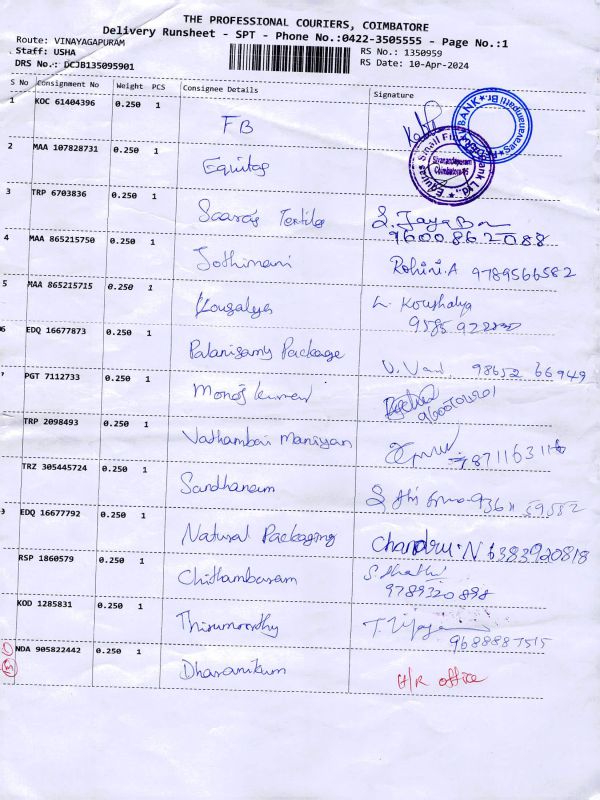 THE PROFESSIONAL COURIERS, COIMBATORE
Delivery Runsheet - SPT - Phone No.:0422-3505555 - Page No.:1
Route: VINAYAGAPURAM
Staff: USHA
DRS No.: DCJB135095901
RS No.: 1350959
RS Date: 10-Apr-2024
S No Consignment No Weight PCS Consignee Details Signature
1 KOC 61404396 0.250 1 FB
2 MAA 107828731 0.250 1 Equitas
3 TRP 6703836 0.250 1 Textiles S. Jaya
9600862088
4 MAA 865215750 0.250 1 Jothimani Rohini.A 9789566582
5 MAA 865215715 0.250 1 Kousalya L. Koushalya
6 EDQ 16677873 0.250 1 Palanisamy Package 98652 66949
7 PGT 7112733 0.250 1
TRP 2098493 0.250 1 Maniyan
TRZ 305445724 0.250 1 Sandhanam
9 EDQ 16677792 0.250 1 Natural Packaging Chandru.N 6383920818
RSP 1860579 0.250 1 Chithambaram
9789320898
KOD 1285831 0.250 1 Thirumoorthy T. Vijaya
9688887515
NDA 905822442 0.250 1 H/R office